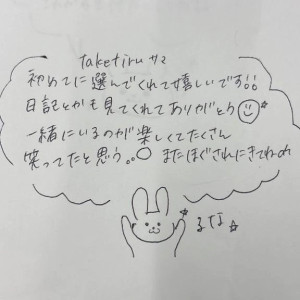 taketiruサマ
初めてに選んでくれて嬉しいです!!
日記とかも見てくれてありがとう
一緒にいるのが楽しくてたくさん
笑ってたと思う。。 またほぐされにきてねっ
るな